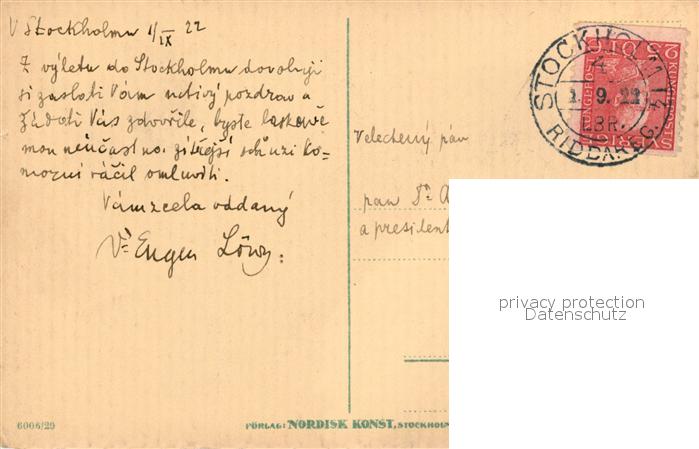 V Stockholmu 1/IX 22
Z výletu do Stockholmu dovoluji
si zaslati Vám uctivý pozdrav a
žádati Vás zdvořile, byste laskavě
mou neúčast na zítřejší schůzi ko=
morní ráčil omluviti.
Vám zcela oddaný
Dr Eugen Löwy.
Velectěný pán
pan Dr. A
a president
STOCKHOLM 14
1.9.22
LBR.
RIDDAREG.
6006/29
FÖRLAG: NORDISK KONST, STOCKHOLM
privacy protection
Datenschutz